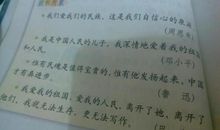 我们爱我们的民族，这是我们自信心的源泉
（周恩来）
我是中国人民的儿子，我深情地爱着我的祖国
和人民。
（邓小平）
惟有民魂是值得宝贵的，惟有他发扬起来，中国
才有真进步。
（鲁 迅）
我爱我的祖国，爱我的人民，离开了她，离开了
他们，我就无法生存，更无法写作。